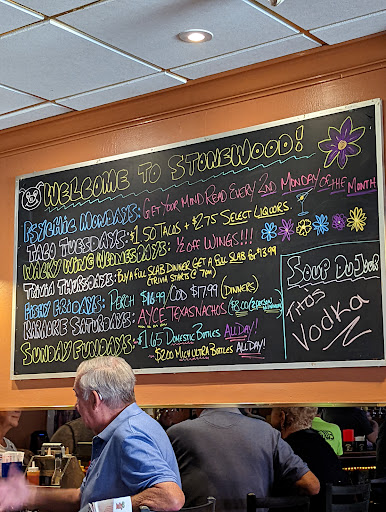 WELCOME TO STONEWOOD!
PSYCHIC MONDAYS: GET YOUR MIND READ EVERY 2ND MONDAY OF THE MONTH
TACO TUESDAYS: $1.50 TACOS + $2.75 SELECT LIQUORS
WACKY WING WEDNESDAYS: 1/2 OFF WINGS!!!
TRIVIA THURSDAYS: BUY A FULL SLAB DINNER GET A FULL SLAB for $13.99
(TRIVIA STARTS @ 7pm)
FISHY FRIDAYS: PERCH $16.99/COD $17.99 (DINNERS)
KARAOKE SATURDAYS: AYCE TEXAS NACHOS
SUNDAY FUNDAYS: $1.65 DOMESTIC BOTTLES ALL DAY!
$2.00 MICH ULTRA BOTTLES ALL DAY!
SOUP DU JOUR
THIS
Vodka